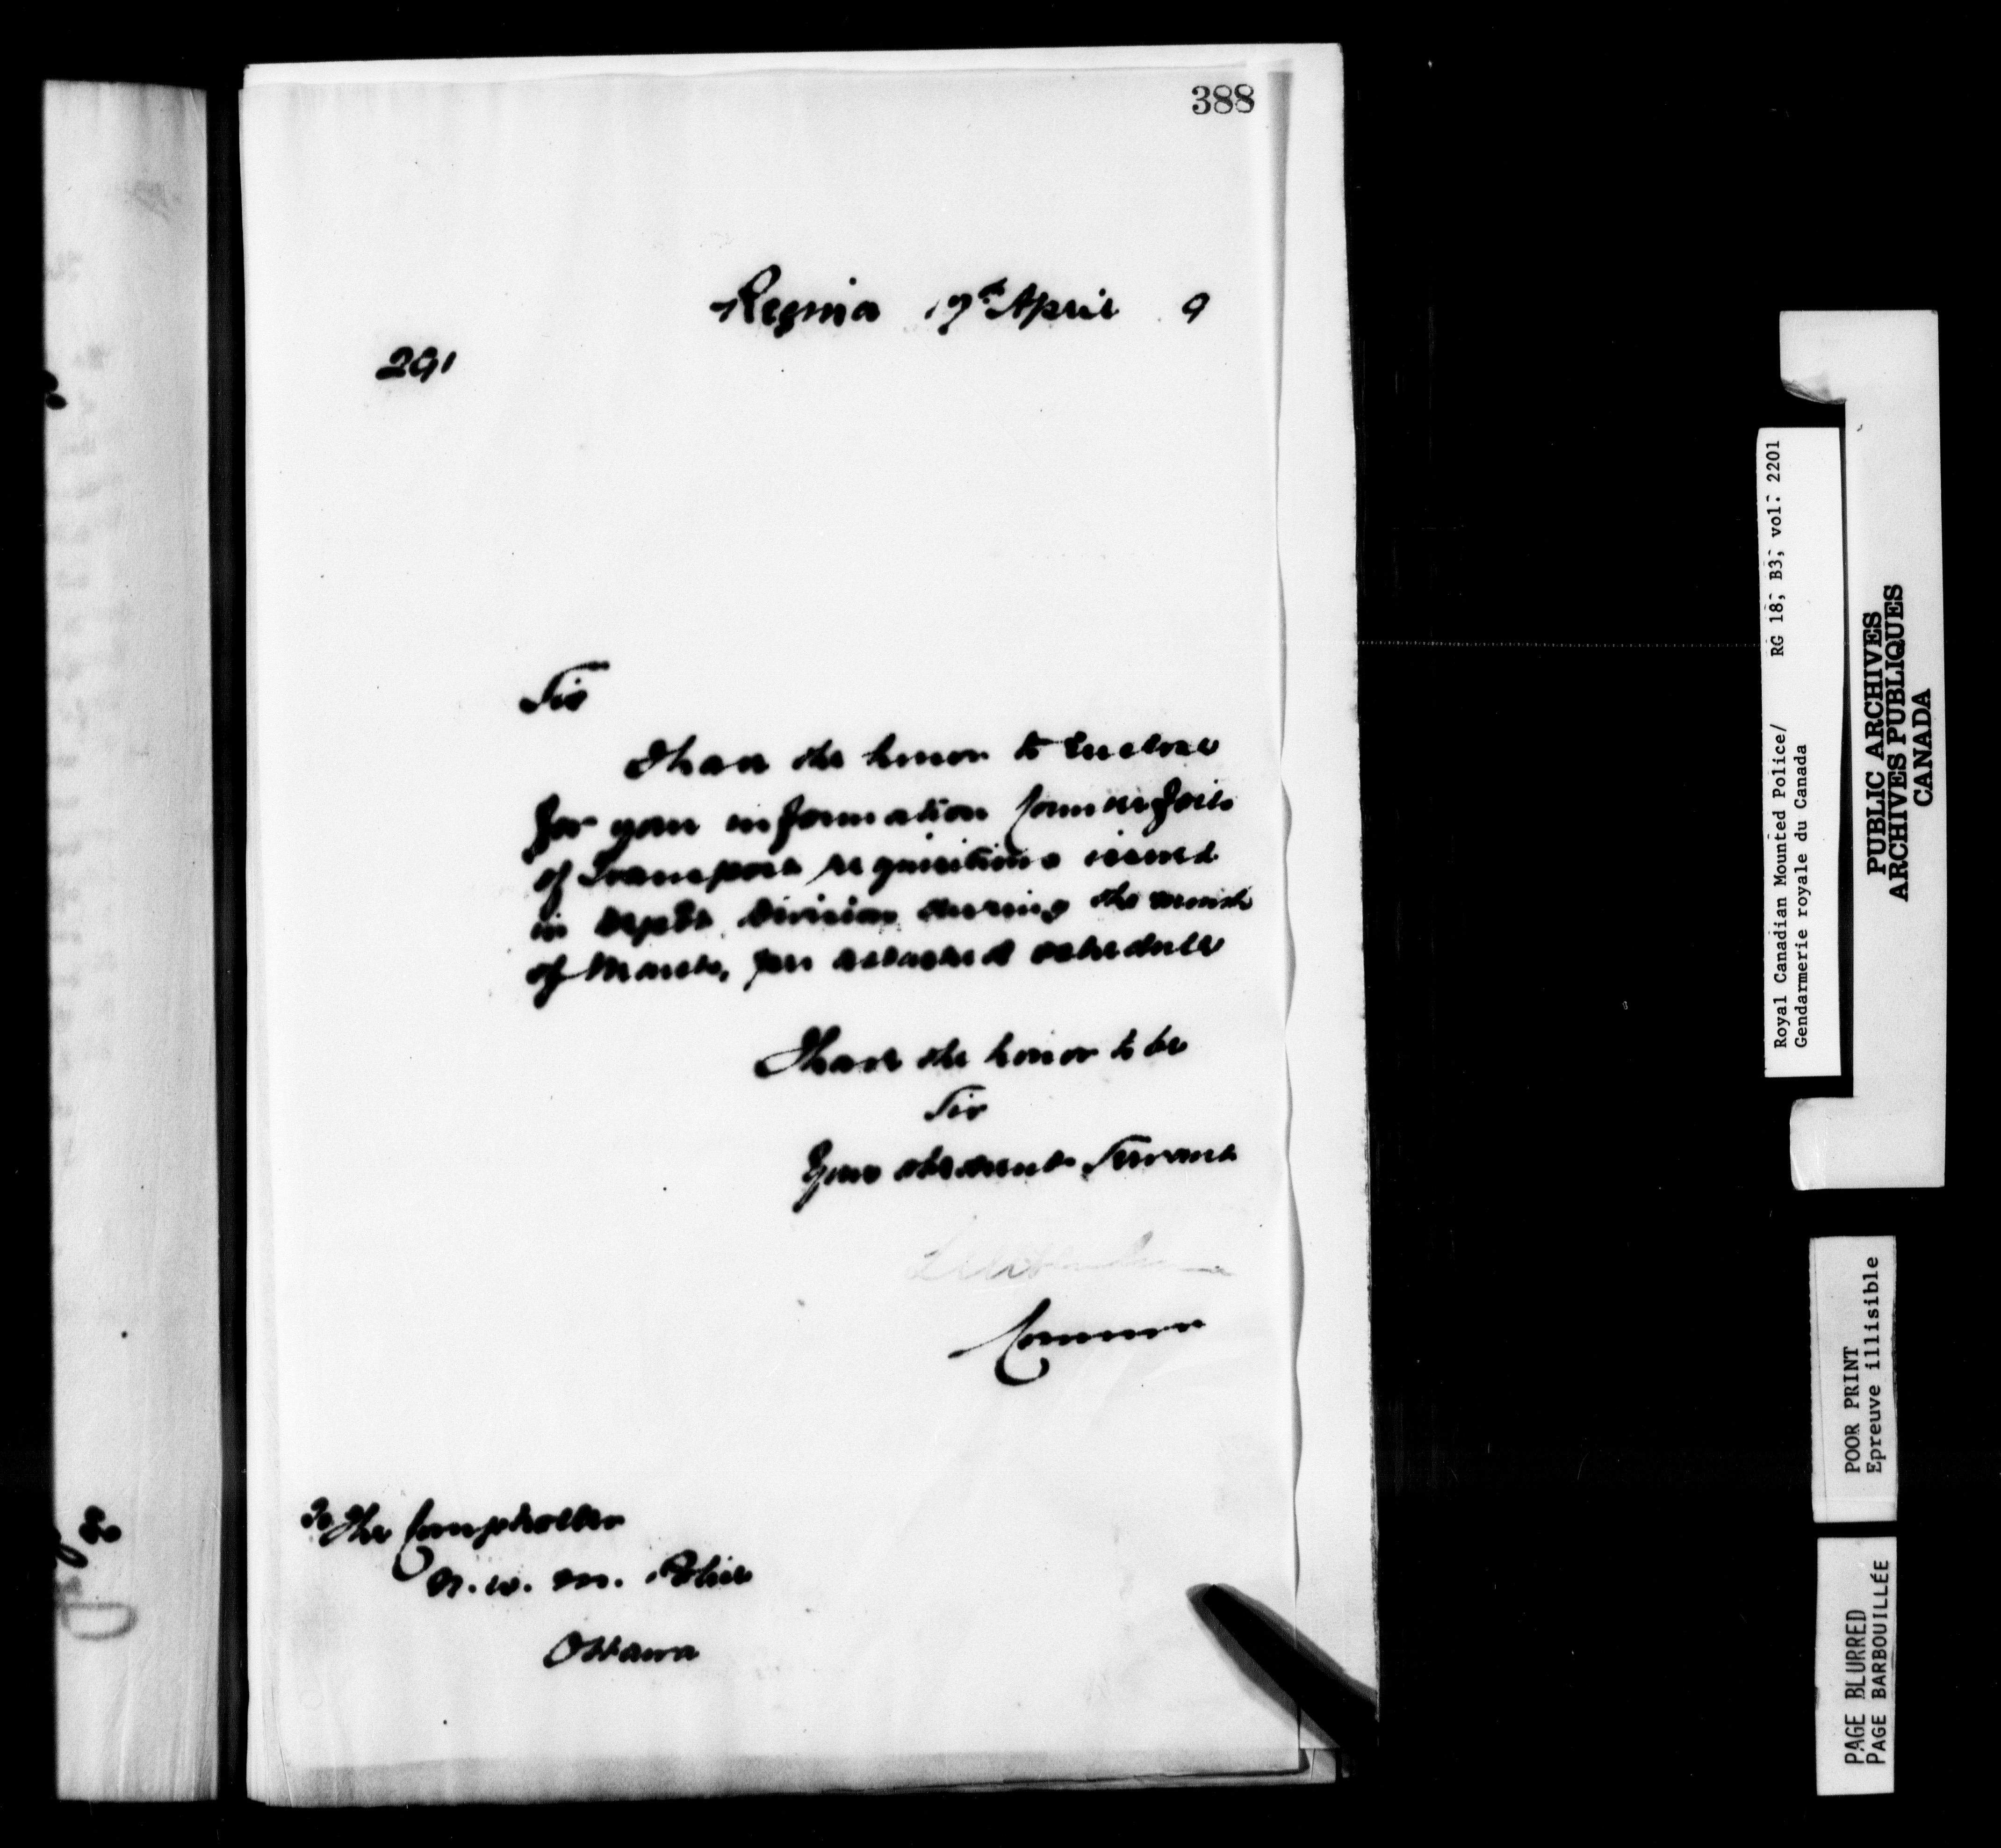 388
Regina 17th April 9
291
Sir
I have the honor to enclose
for your information Counterfoils
of Transport requisitions issued
in Depôt Division during the month
of March, per attached schedule
I have the honor to be
Sir
Your obedient Servant
Commr
To The Comptroller
N. W. M. Police
Ottawa
Royal Canadian Mounted Police/ RG 18, B3, vol. 2201
Gendarmerie royale du Canada
PUBLIC ARCHIVES
ARCHIVES PUBLIQUES
CANADA
POOR PRINT
Epreuve illisible
PAGE BLURRED
PAGE BARBOUILLÉE